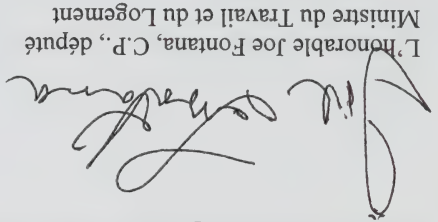 Joe Fontana
L'honorable Joe Fontana, C.P., député
Ministre du Travail et du Logement